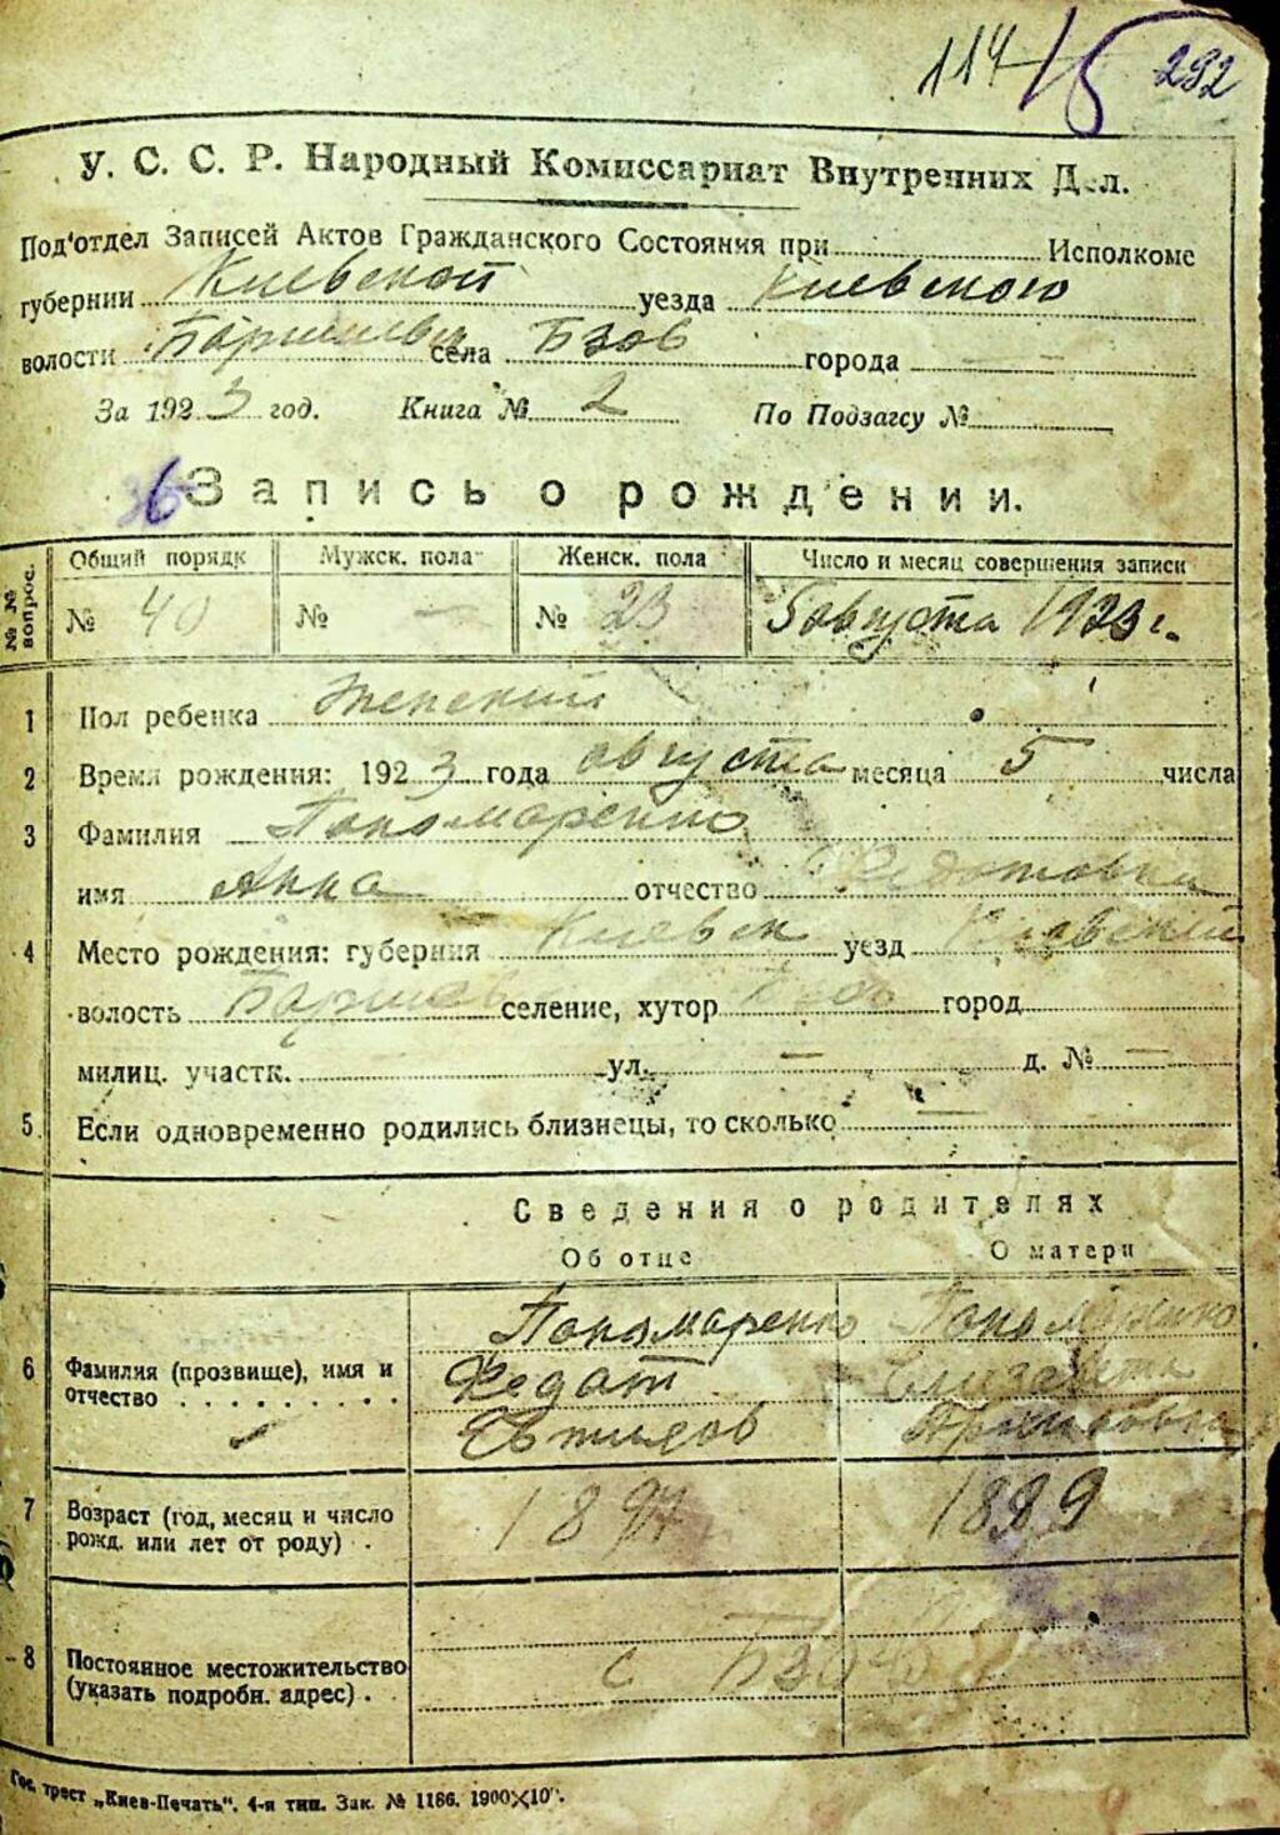 114 15 292
У. С. С. Р. Народный Комиссариат Внутренних Дел.
Под'отдел Записей Актов Гражданского Состояния при Исполкоме
губернии Киевской уезда Киевского
волости села Бзов города —
За 1923 год. Книга № 2 По Подзагсу №
Запись о рождении.
№№ вопрос. Общий порядк Мужск. пола Женск. пола Число и месяц совершения записи
№ 40 № — № 23 5 августа 1923 г.
1 Пол ребенка Женский
2 Время рождения: 1923 года августа месяца 5 числа
3 Фамилия Пономаренко
имя Анна отчество Федотовна
4 Место рождения: губерния Киевск уезд Киевский
волость Баришев селение, хутор Бзов город
милиц. участк. ул. — д. № —
5. Если одновременно родились близнецы, то сколько —
Сведения о родителях
Об отце О матери
Пономаренко Пономаренко
6 Фамилия (прозвище), имя и Федот Елизавета
отчество . . . . . . . . . .
7 Возраст (год, месяц и число 1897 1899
рожд. или лет от роду) .
8 Постоянное местожительство с
(указать подробн. адрес) .
Гос. трест „Киев-Печать". 4-я тип. Зак. № 1166. 1900×10".